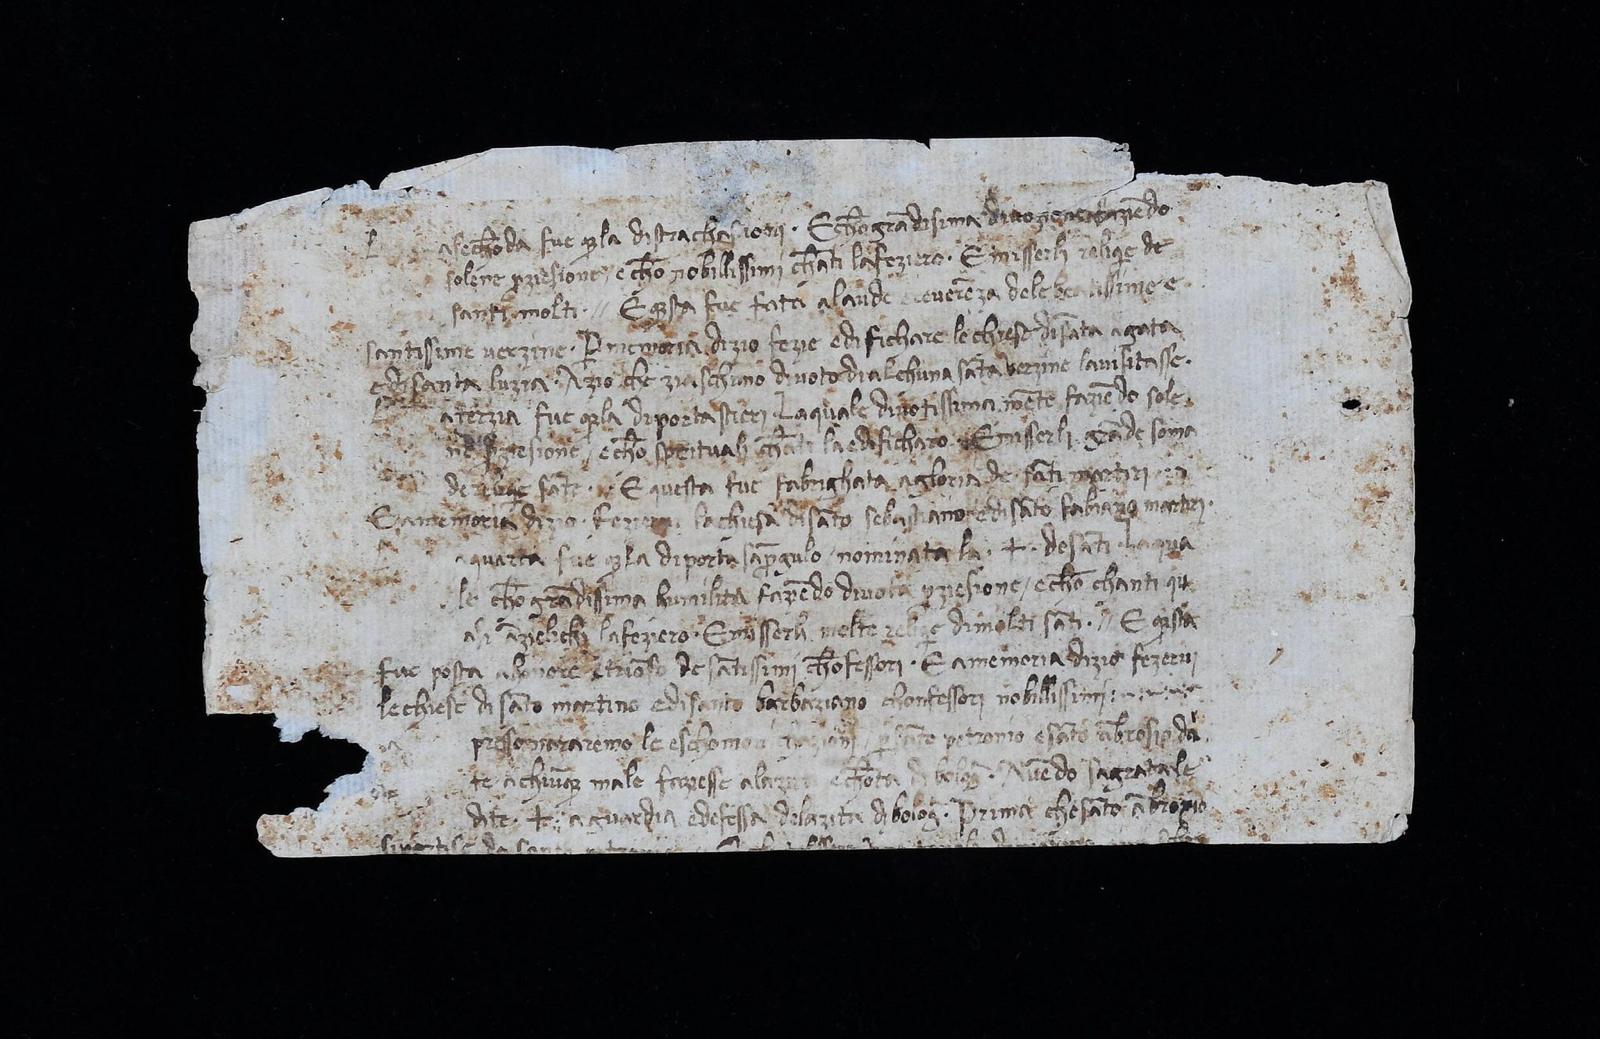 L asechōda fue q̄la distrachastioni · E chō grādisima divozione fazēdo
solēne p̄ziesione / e chō nobillissimi chāti la feziero · E misserli reliq̄e de
santi molti · // E q̄sta fue fata a laude e reverēza dele beatissime e
santissime verzine · P memoria di zio fezie edifichare le chiese di sāta agata
e di santa luzia · Azio che ziaschuno divoto di alchuna sāta verzine la visitasse ·
a terzia fue q̄la di porta stieri La quale divotissima mēte fazēdo sole
ne p̄ziesione / e chō spirituali chāti la edificharo · E misserli grāde soma
de reliq̄e sāte · // E questa fue fabrighata a gloria de sāti martiri ·
E a memoria di zio · fezervi la chiesa di sāto sebastiano e di sāto fabiano martiri ·
a quarta fue q̄la di porta sā p̄gulo / nominata la · ✝ · de sāti · La qua
le chō grādissima humilita fazēdo divota p̄ziesione / e chō chanti qu
a si āzielichi la feziero · E misserli molte reliq̄e di molti sāti · // E q̄sta
fue posta al honore e triōfo de sātissimi chōfessori · E a memoria di zio fezervi
le chiese di sāto martino e di santo barbaziano chonfessori nobillissimi :
presso notaremo le eschomonichazioni / p̄ sāto petronio e sāto ābrosio da
te a chiūq̄ male fazesse a la zita e chōta di boloḡ · Avēdo sagrata le
dite · ✝ · a guardia e defessa dela zita di boloḡ · Prima che sāto ābroxio